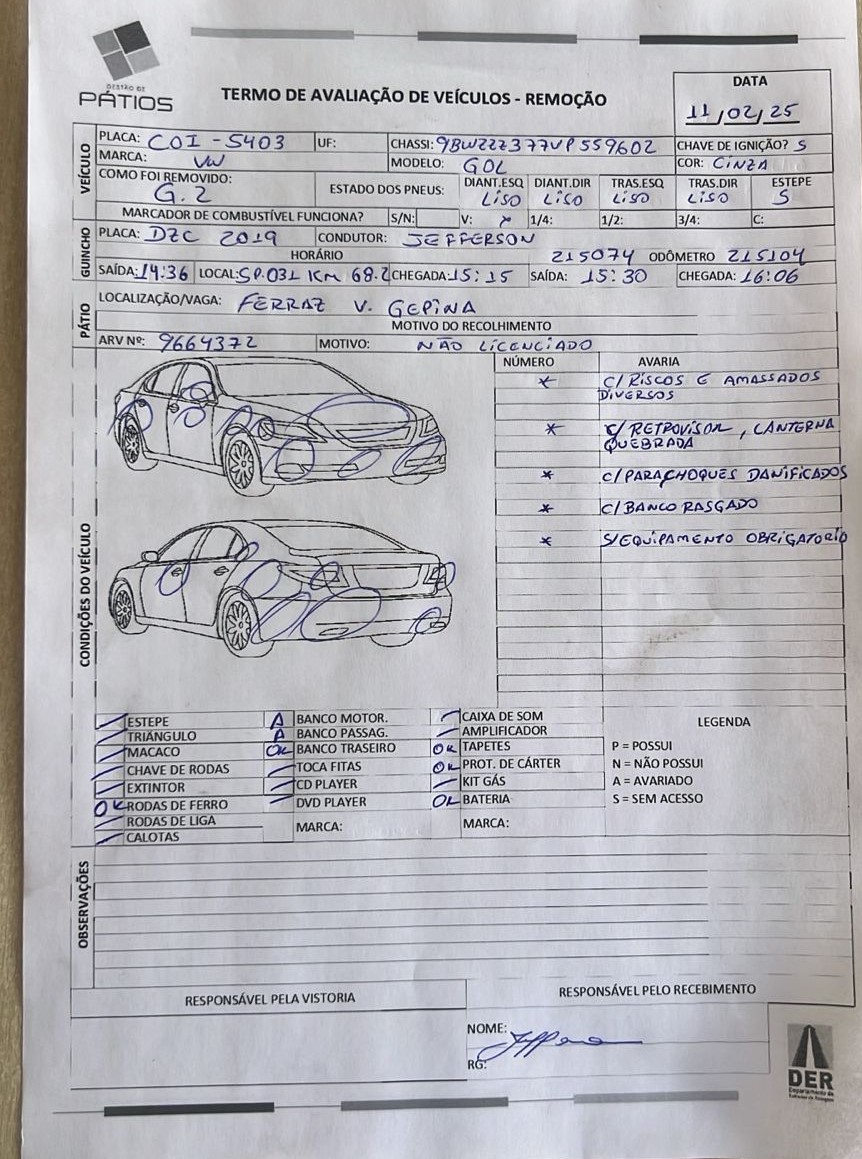 GESTÃO DE
PÁTIOS
TERMO DE AVALIAÇÃO DE VEÍCULOS - REMOÇÃO
DATA
11/02/25
VEÍCULO
PLACA: COI - 5403 UF: CHASSI: 9BWZZZ377VP559602 CHAVE DE IGNIÇÃO? S
MARCA: VW MODELO: GOL COR: CINZA
COMO FOI REMOVIDO: G.2 ESTADO DOS PNEUS: DIANT.ESQ LISO DIANT.DIR LISO TRAS.ESQ LISO TRAS.DIR LISO ESTEPE S
MARCADOR DE COMBUSTÍVEL FUNCIONA? S/N: V: 1/4: 1/2: 3/4: C:
GUINCHO
PLACA: DZC 2019 CONDUTOR: JEFFERSON
HORÁRIO 215074 ODÔMETRO 215104
SAÍDA: 14:36 LOCAL: SP.031 KM 68.2 CHEGADA: 15:15 SAÍDA: 15:30 CHEGADA: 16:06
PÁTIO
LOCALIZAÇÃO/VAGA: FERRAZ V. GEPINA
MOTIVO DO RECOLHIMENTO
ARV Nº: 9664372 MOTIVO: NÃO LICENCIADO
CONDIÇÕES DO VEÍCULO
NÚMERO AVARIA
* C/ RISCOS E AMASSADOS
DIVERSOS
* C/ RETROVISOR, LANTERNA
QUEBRADA
* C/ PARACHOQUES DANIFICADOS
* C/ BANCO RASGADO
* S/ EQUIPAMENTO OBRIGATORIO
ESTEPE A BANCO MOTOR. CAIXA DE SOM LEGENDA
TRIÂNGULO A BANCO PASSAG. AMPLIFICADOR
MACACO OK BANCO TRASEIRO OK TAPETES P = POSSUI
CHAVE DE RODAS TOCA FITAS OK PROT. DE CÁRTER N = NÃO POSSUI
EXTINTOR CD PLAYER KIT GÁS A = AVARIADO
OK RODAS DE FERRO DVD PLAYER OK BATERIA S = SEM ACESSO
RODAS DE LIGA MARCA: MARCA:
CALOTAS
OBSERVAÇÕES
RESPONSÁVEL PELA VISTORIA RESPONSÁVEL PELO RECEBIMENTO
NOME:
RG:
DER